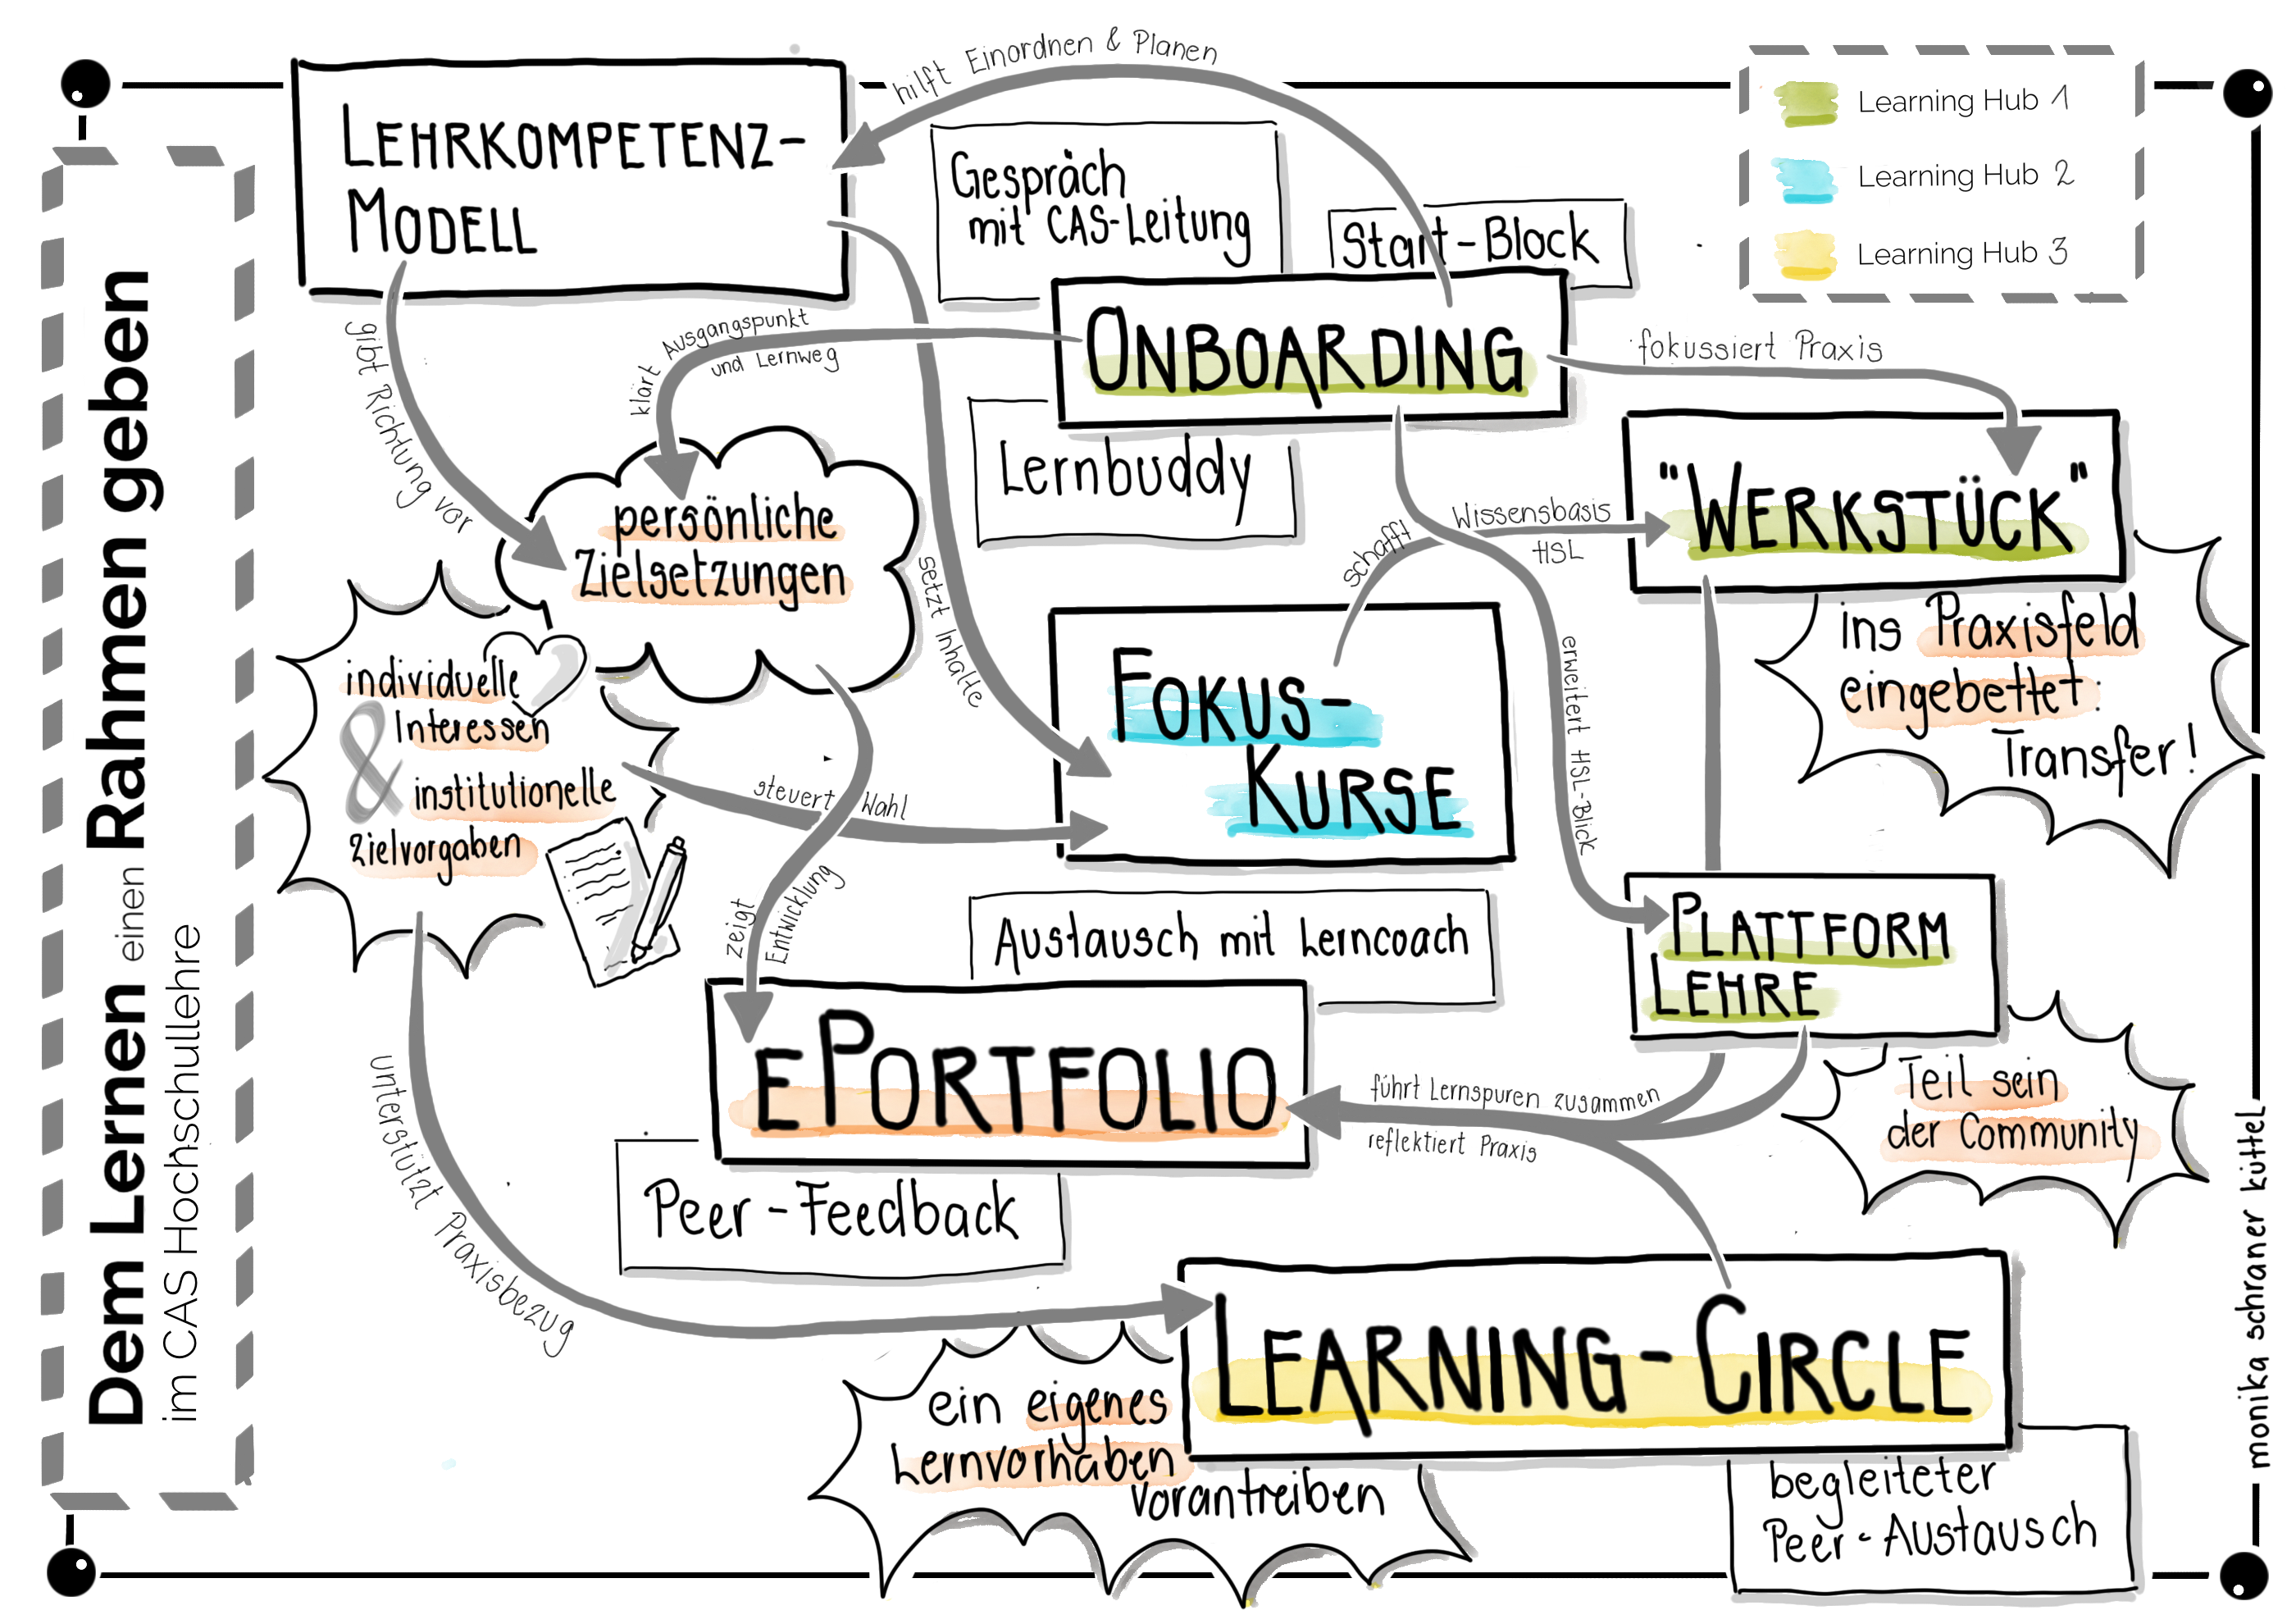 Dem Lernen einen Rahmen geben
im CAS Hochschullehre
LEHRKOMPETENZ-
MODELL
hilft Einordnen & Planen
Gespräch
mit CAS-Leitung
Start-Block
Learning Hub 1
Learning Hub 2
Learning Hub 3
ONBOARDING
Lernbuddy
klärt Ausgangspunkt
und Lernweg
gibt Richtung vor
fokussiert Praxis
persönliche
Zielsetzungen
"WERKSTÜCK"
schafft Wissensbasis
HSL
setzt Inhalte
erweitert HSL-Blick
ins Praxisfeld
eingebettet:
Transfer!
individuelle
Interessen
&
institutionelle
Zielvorgaben
steuert Wahl
FOKUS-
KURSE
zeigt
Entwicklung
Austausch mit Lerncoach
PLATTFORM
LEHRE
Teil sein
der Community
ePORTFOLIO
führt Lernspuren zusammen
reflektiert Praxis
Peer-Feedback
unterstützt Praxisbezug
LEARNING-CIRCLE
ein eigenes
Lernvorhaben
vorantreiben
begleiteter
Peer-Austausch
monika schraner küttel